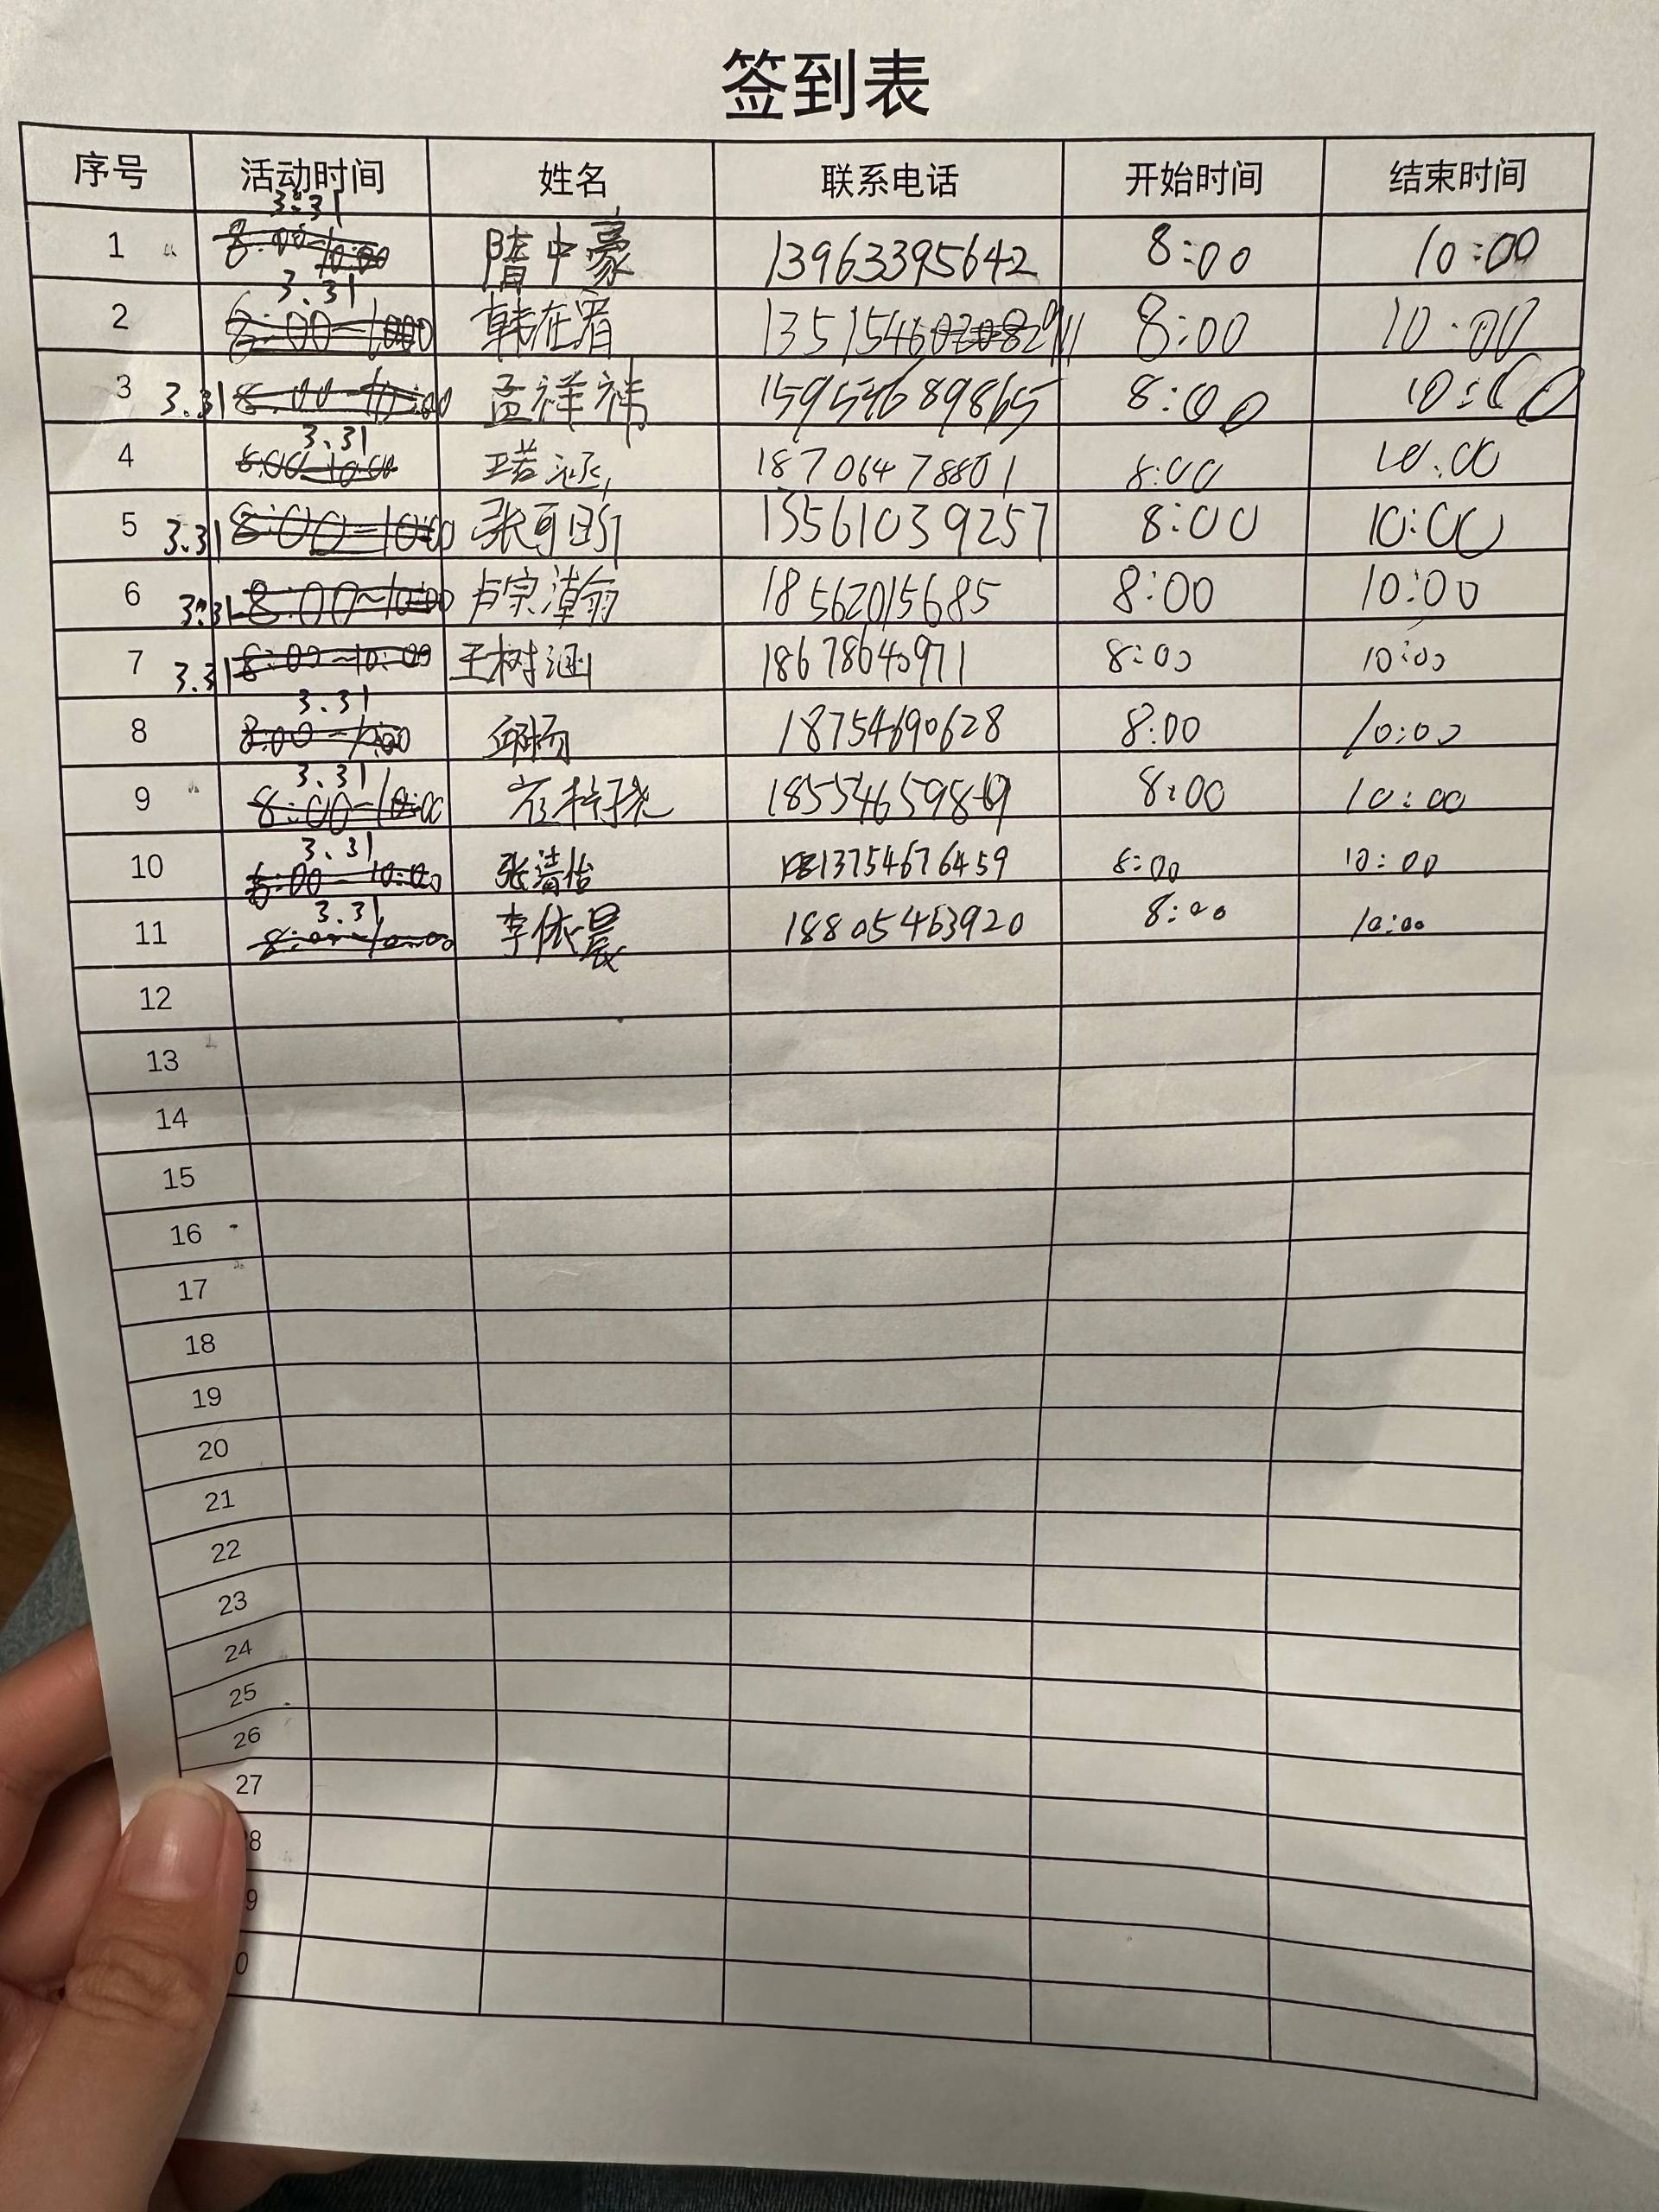 签到表
序号 活动时间 姓名 联系电话 开始时间 结束时间
1 3.31 8:00-10:00 隋中豪 13963395642 8:00 10:00
2 3.31 8:00-10:00 8:00 10:00
3 3.31 8:00-10:00 孟祥祎 8:00 10:00
4 3.31 8:00-10:00 18706478801 8:00 10:00
5 3.31 8:00-10:00 张可昕 8:00 10:00
6 3.31 8:00~10:00 卢宗 18562015685 8:00 10:00
7 3.31 8:00~10:00 王树涵 8:00 10:00
8 3.31 8:00-10:00 邱杨 18754690628 8:00 10:00
9 3.31 8:00-10:00 8:00 10:00
10 3.31 8:00-10:00 张清怡 13754676459 8:00 10:00
11 3.31 8:00-10:00 李依晨 18805463920 8:00 10:00
12
13
14
15
16
17
18
19
20
21
22
23
24
25
26
27
8
9
0